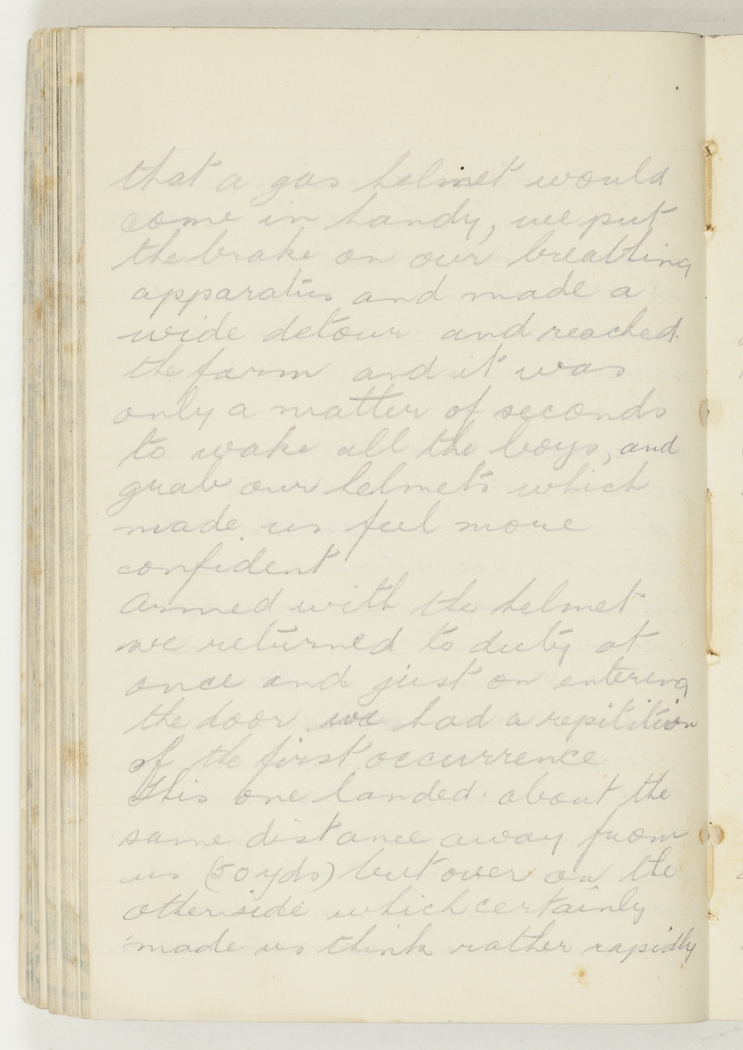 that a gas helmet would
come in handy, we put
the brake on our breathing
apparatus and made a
wide detour and reached
the farm and it was
only a matter of seconds
to wake all the boys, and
grab our helmets which
made us feel more
confident
Armed with the helmet
we returned to duty at
once and just on entering
the door we had a repitition
of the first occurrence
This one landed about the
same distance away from
us (50 yds) but over on the
otherside which certainly
made us think rather rapidly